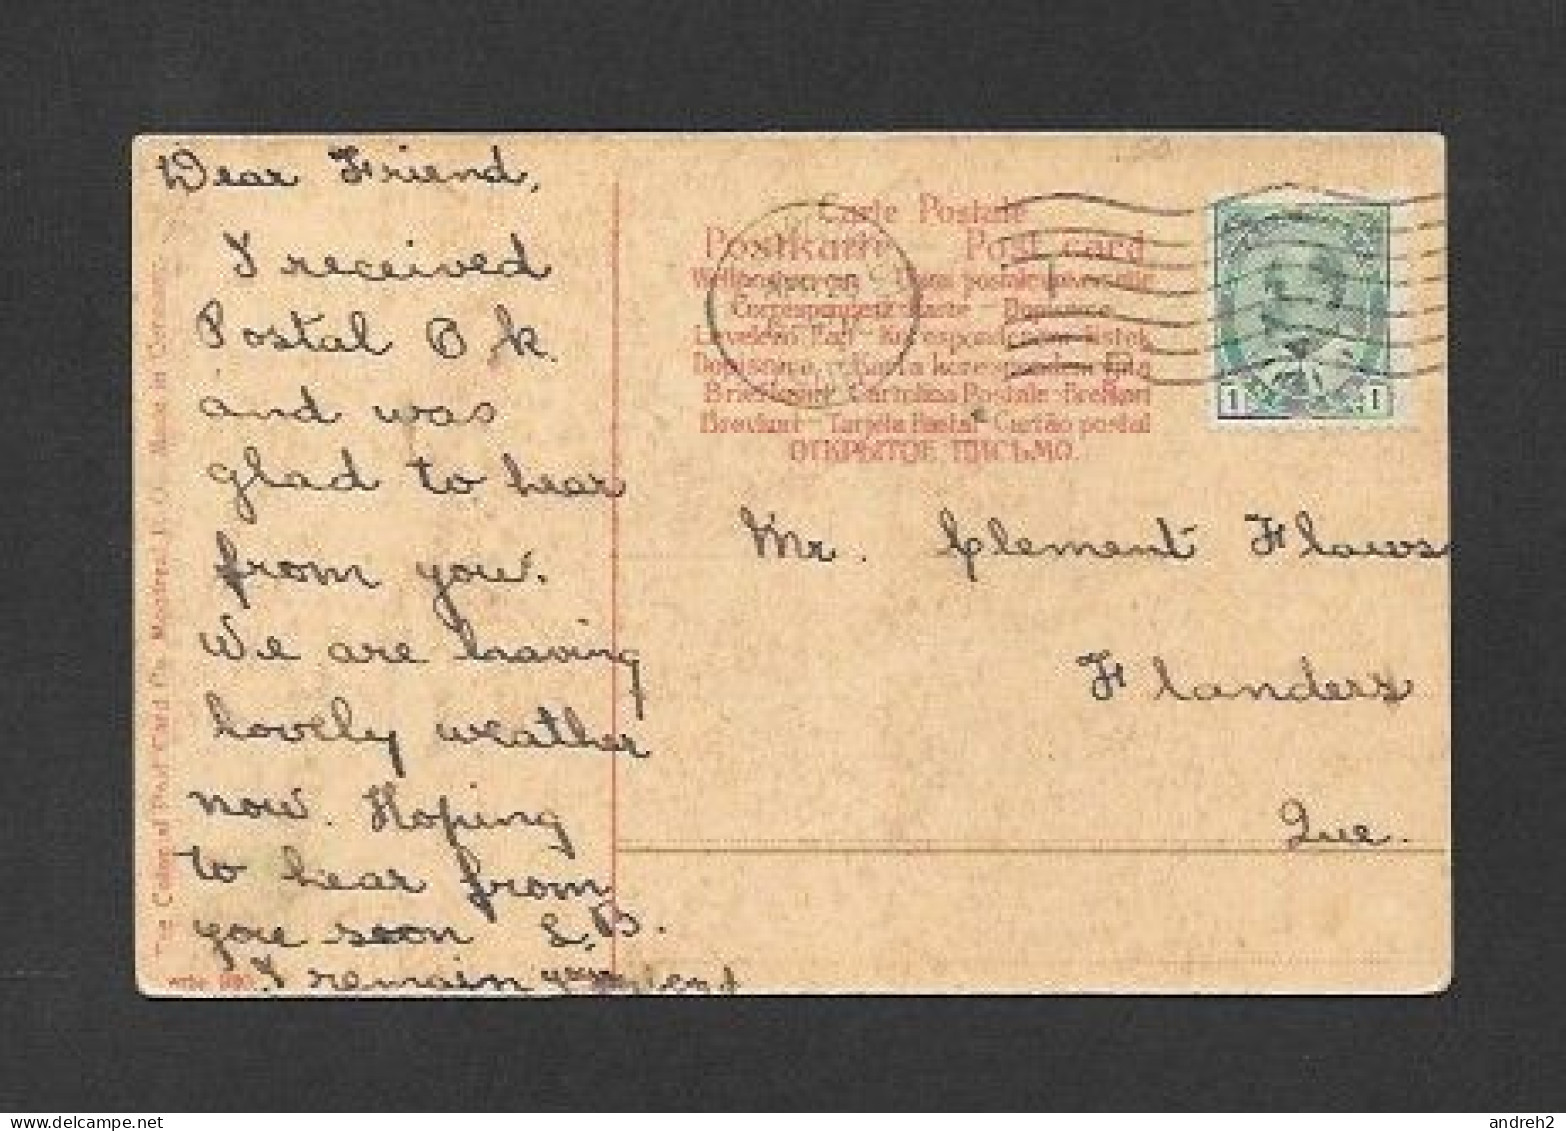 Dear Friend,
I received
Postal O k
and was
glad to hear
from you.
We are having
lovely weather
now. Hoping
to hear from
you soon L.B.
I remain your
Carte Postale
Postkarte Post card
Weltpostkarte
Correspondenz-Karte - Dopisnice
Levelező Lap
Cartolina Postale
Tarjeta Postal - Cartão postal
ОТКРЫТОЕ ПИСЬМО.
1 1
Mr. Clement Flaws
Flanders
Que.
The Colonial Post Card Co. Montreal, P. Q. Made in Germany.
andreh2